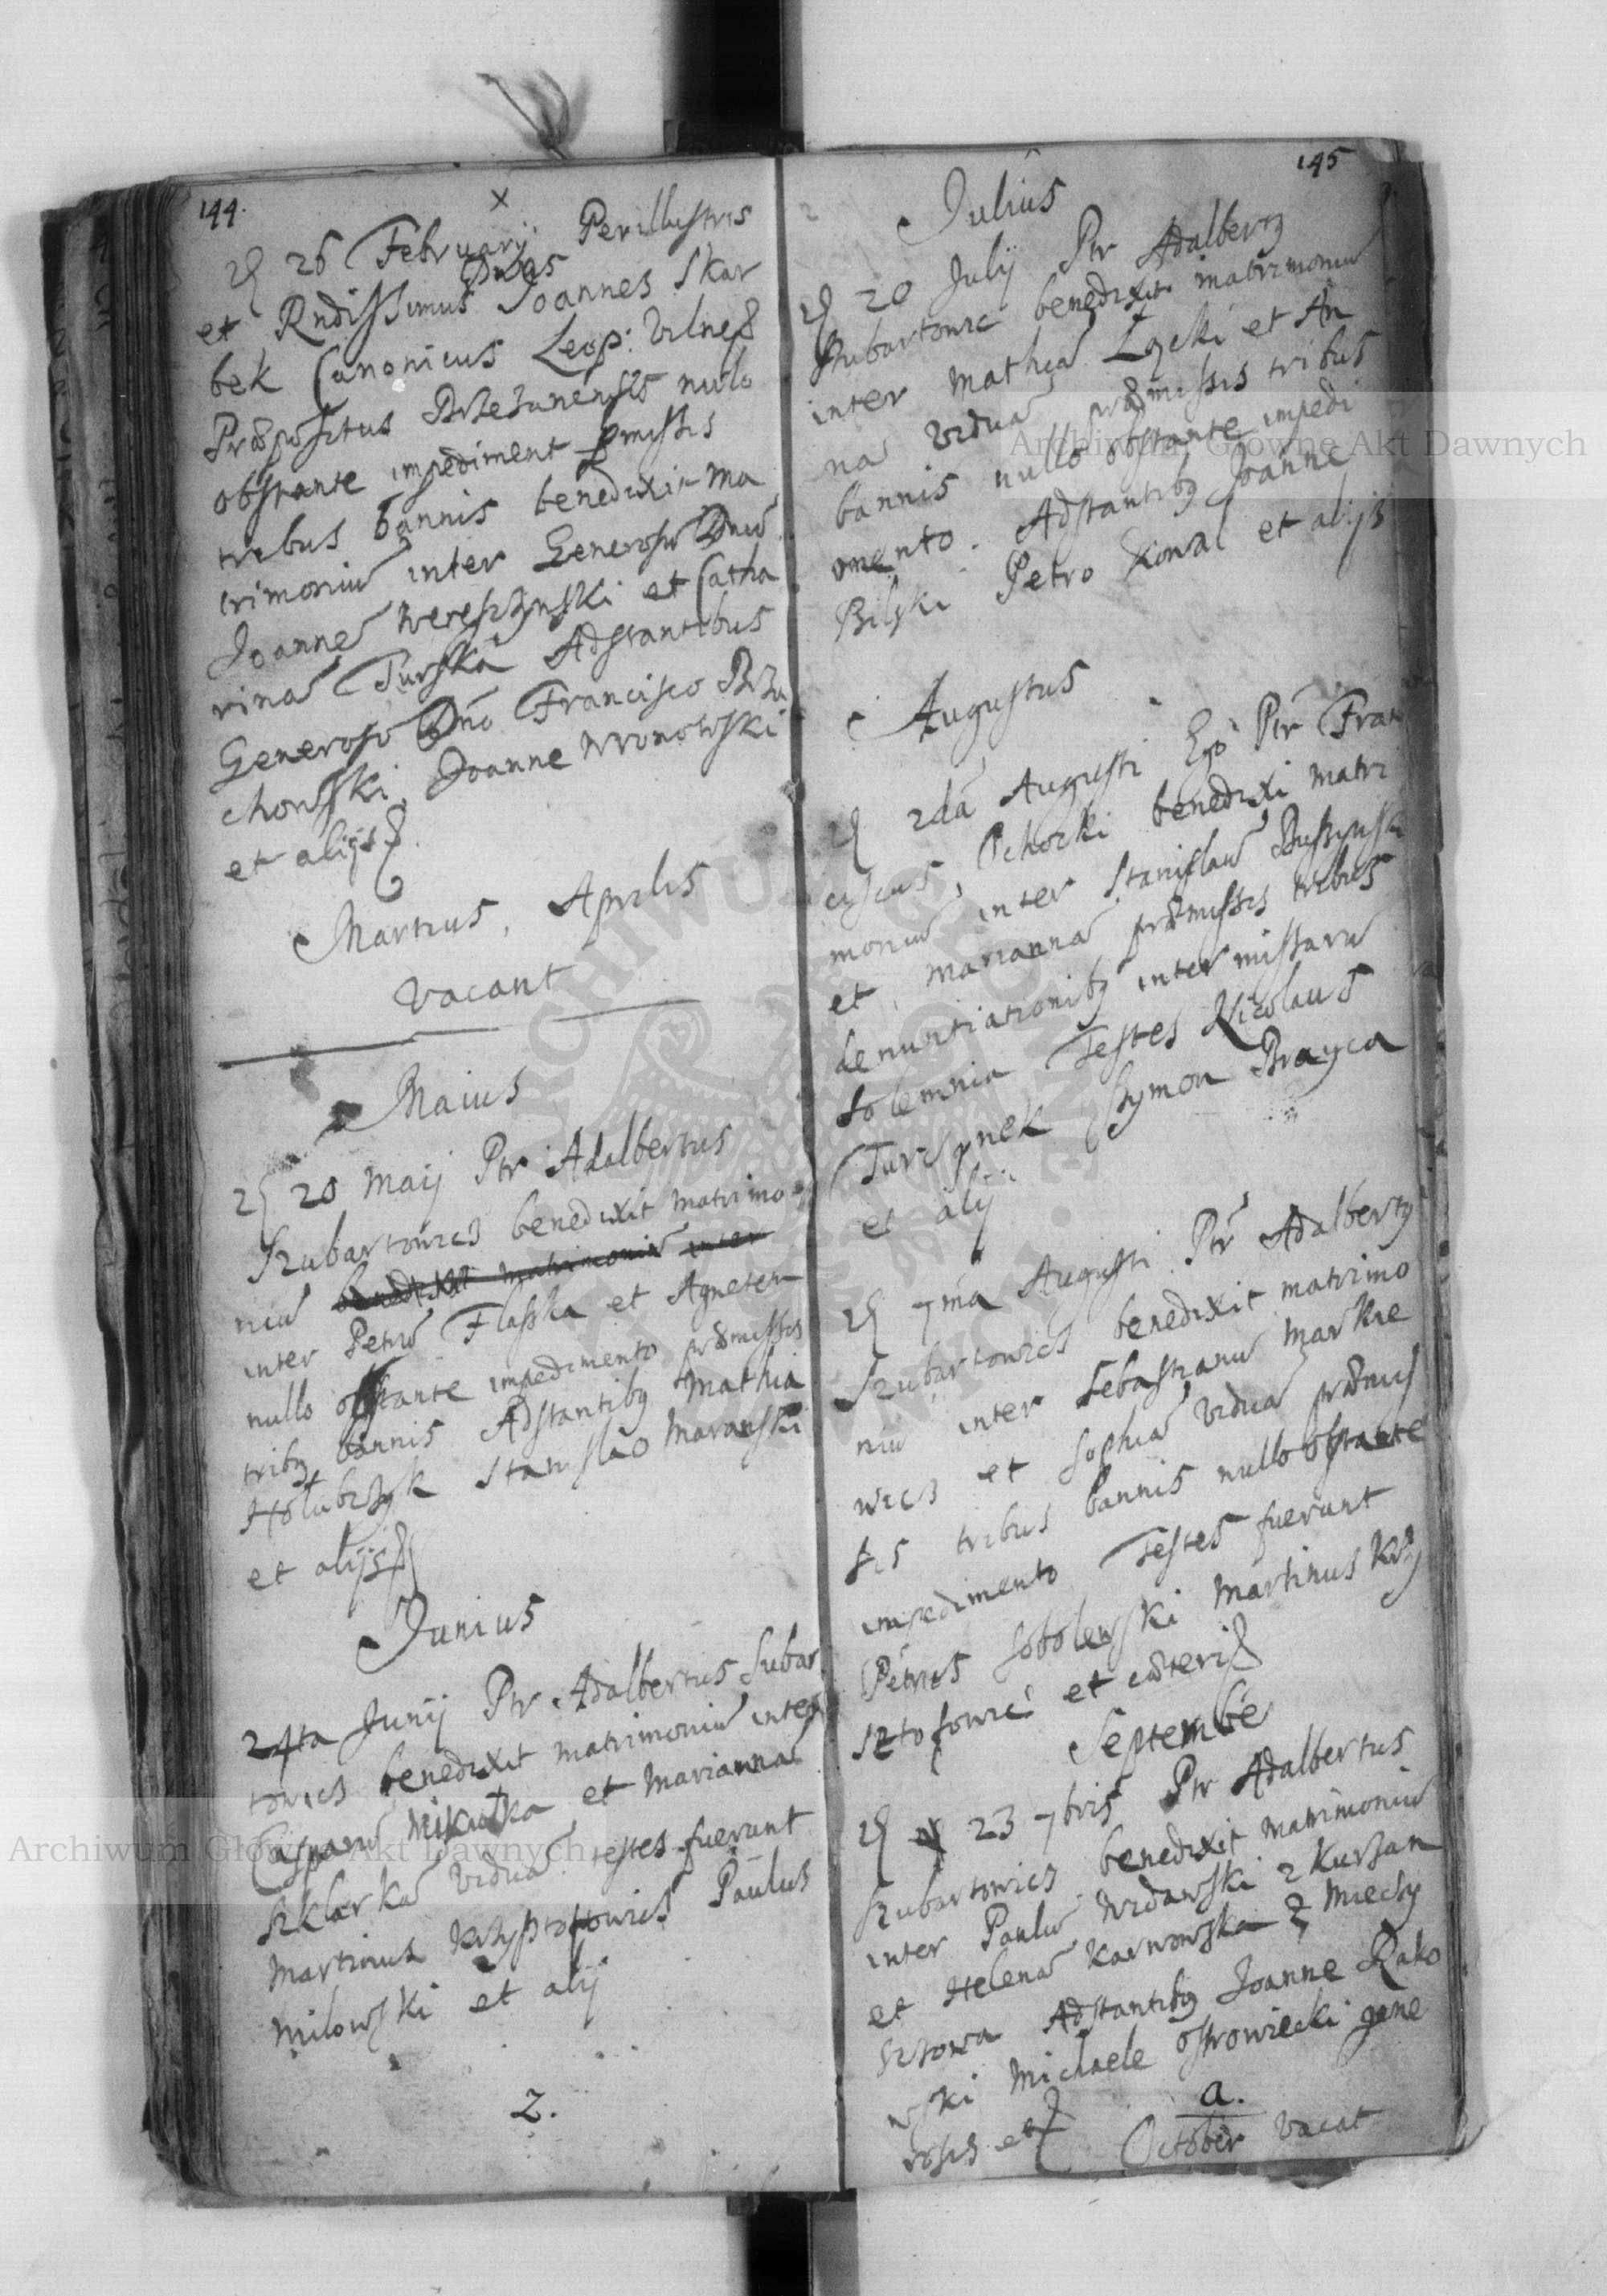 144.
x
26 February Perillustris
et Rndissimus Dnus Joannes Skar
bek Canonicus Leop: Vilnes
Præpositus Brzezanensis nullo
obstante impediment pmissis
tribus bannis benedixit Ma
trimoniu inter Generosu Dnu
Joanne Wereszynski et Catha
rina Turska Adstantibus
Generoso Dno Francisco Brzu
chowski, Joanne Wronowski
et alijs
Martius, Aprilis
Vacant
Maius
20 Maij Ptr Adalbertus
Szubartowicz benedixit matrimo
niu benedixit matrimoniu inter
inter Petru Flaszka et Agnetem
nullo obstante impedimento præmissis
tribq bannis Adstantibq Mathia
Holubczyk Stanislao Maranski
et alijs
Junius
24ta Junij Ptr Adalbertus Subar
towicz benedixit matrimoniu inter
Casparu Mikutka et Marianna
Szklarka vidua testes fuerunt
Martinus Krzysztofowicz Paulus
Milowski et alij
2.
145
Julius
20 Julij Ptr Adalbertq
Szubartowic benedixit matrimoniu
inter Mathia Lącki et An
na vidua præmissis tribus
bannis nullo obstante impedi
mento. Adstantibq Joanne
Bilski Petro Kowal et alijs
Augustus
2da Augusti Ego Ptr Fran
ciscus Ochocki benedixi matri
moniu inter Stanislau Buszynski
et Marianna præmissis tribus
denuntiationibq inter missaru
solemnia Testes Nicolaus
Turczynek Szymon Brayca
et alij
7ma Augusti Ptr Adalbertq
Szubartowicz benedixit matrimo
niu inter Sebastianu Markie
wicz et Sophia vidua præmis
sis tribus bannis nullo obstante
impedimento Testes fuerunt
Petrus Sobolewski Martinus Krzy
sztofowic et cæteris
September
23 7bris Ptr Adalbertus
Szubartowicz benedixit matrimoniu
inter Paulu Widawski z Kurzan
et Helena Karwowska z Mieczy
szczowa Adstantibq Joanne Rako
wski Michaele Ostrowiecki gene
rosis et
a.
October vacat
Archiwum Główne Akt Dawnych
Archiwum Główne Akt Dawnych